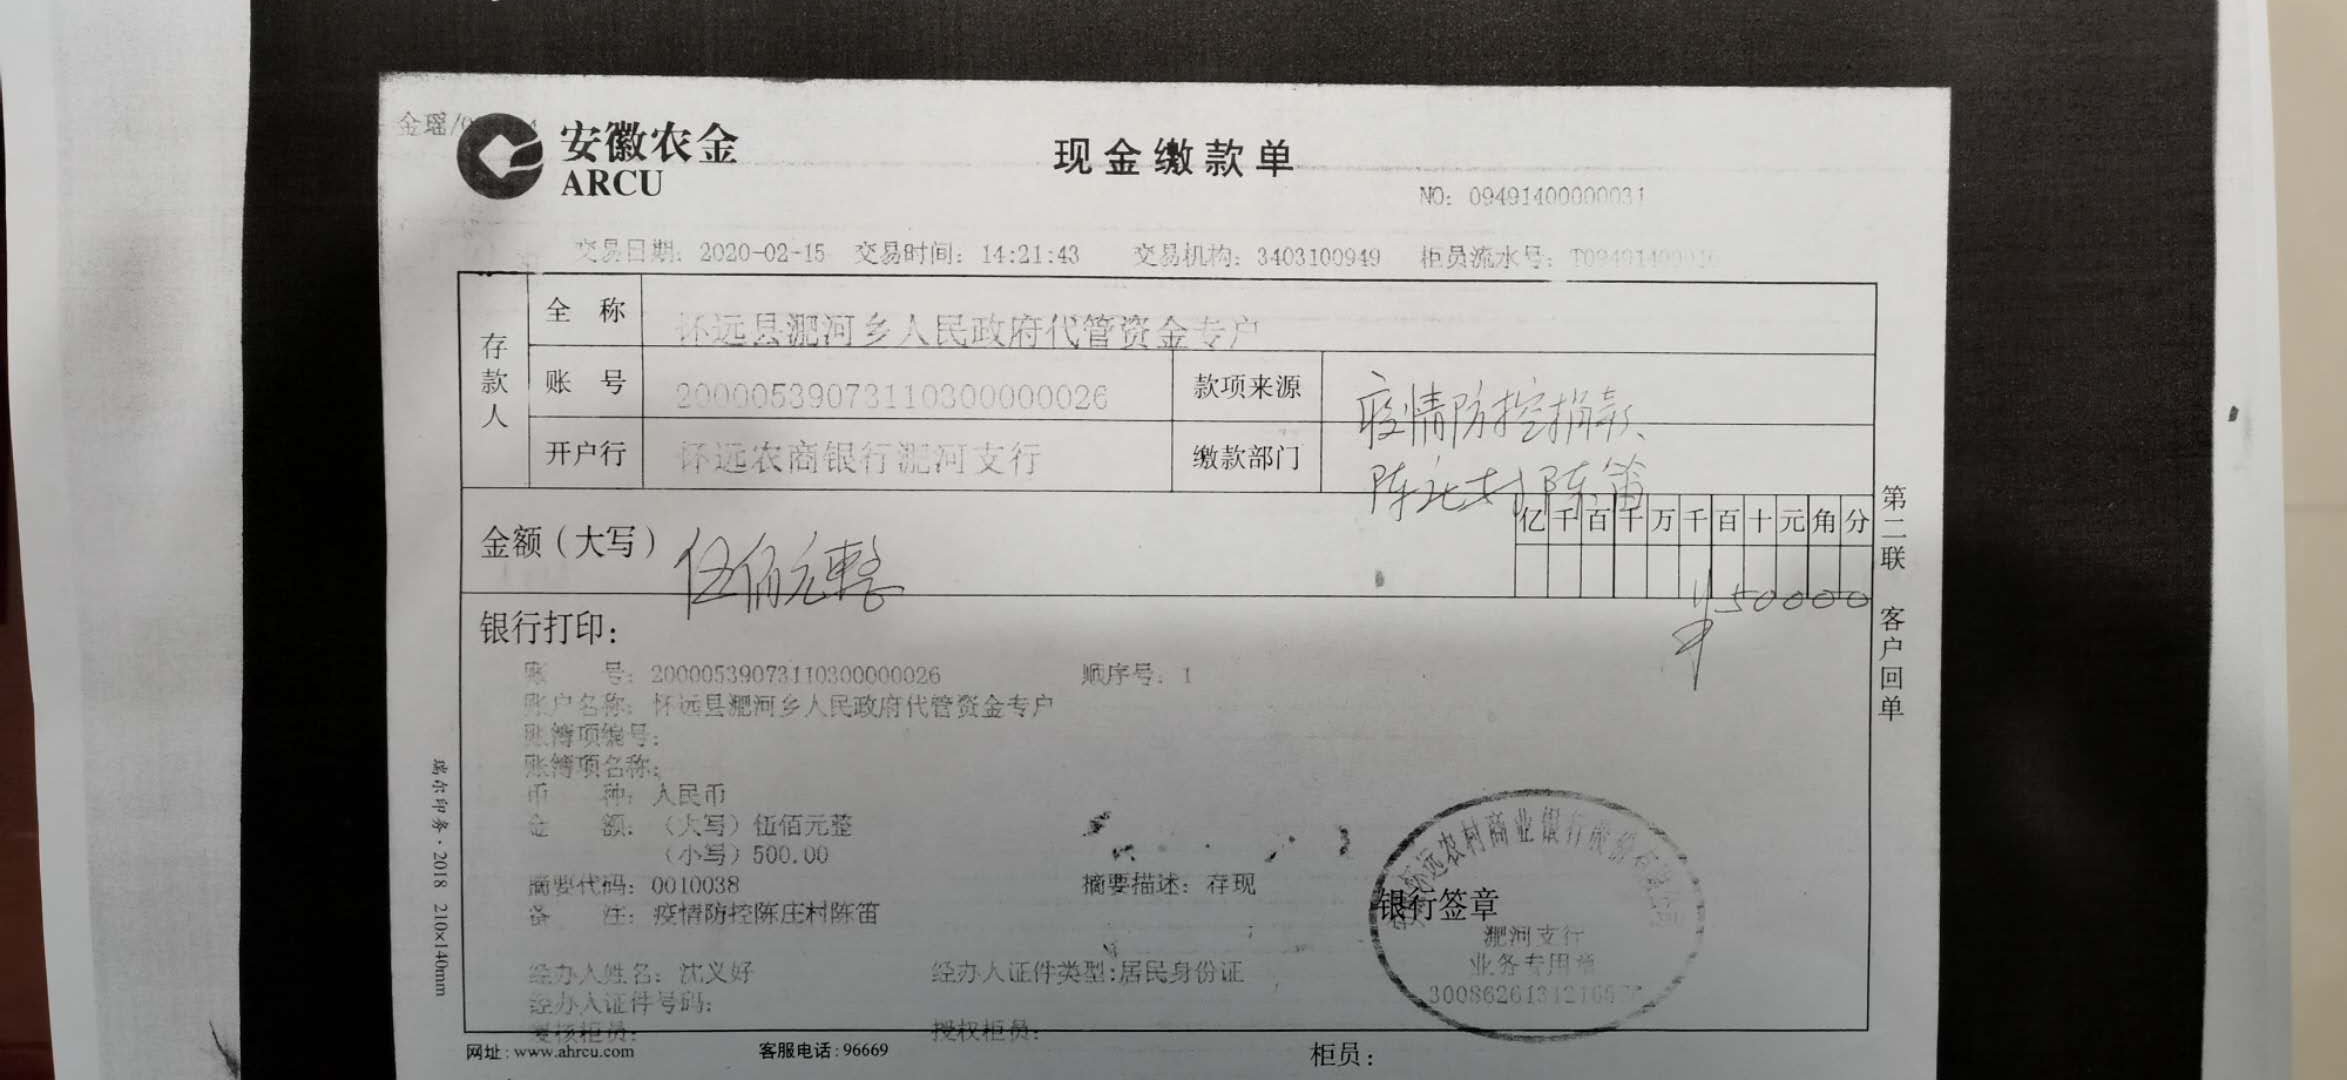 金瑶/0
安徽农金
ARCU
现金缴款单
NO: 09491400000031
交易日期: 2020-02-15 交易时间: 14:21:43 交易机构: 3403100949 柜员流水号:
存款人
全 称 怀远县淝河乡人民政府代管资金专户
账 号 20000539073110300000026 款项来源 疫情防控捐款
开户行 怀远农商银行淝河支行 缴款部门 陈庄村陈笛
金额(大写) 伍佰元整
亿千百十万千百十元角分
¥50000
第二联 客户回单
银行打印:
账 号: 20000539073110300000026 顺序号: 1
账户名称: 怀远县淝河乡人民政府代管资金专户
账簿项编号:
账簿项名称:
币 种: 人民币
金 额: (大写) 伍佰元整
(小写) 500.00
摘要代码: 0010038 摘要描述: 存现
备 注: 疫情防控陈庄村陈笛
银行签章
怀远农村商业银行股份有限公司
淝河支行
业务专用章
经办人姓名: 沈义好 经办人证件类型:居民身份证
经办人证件号码:
复核柜员: 授权柜员:
网址: www.ahrcu.com 客服电话: 96669 柜员:
瑞尔印务·2018 210×140mm